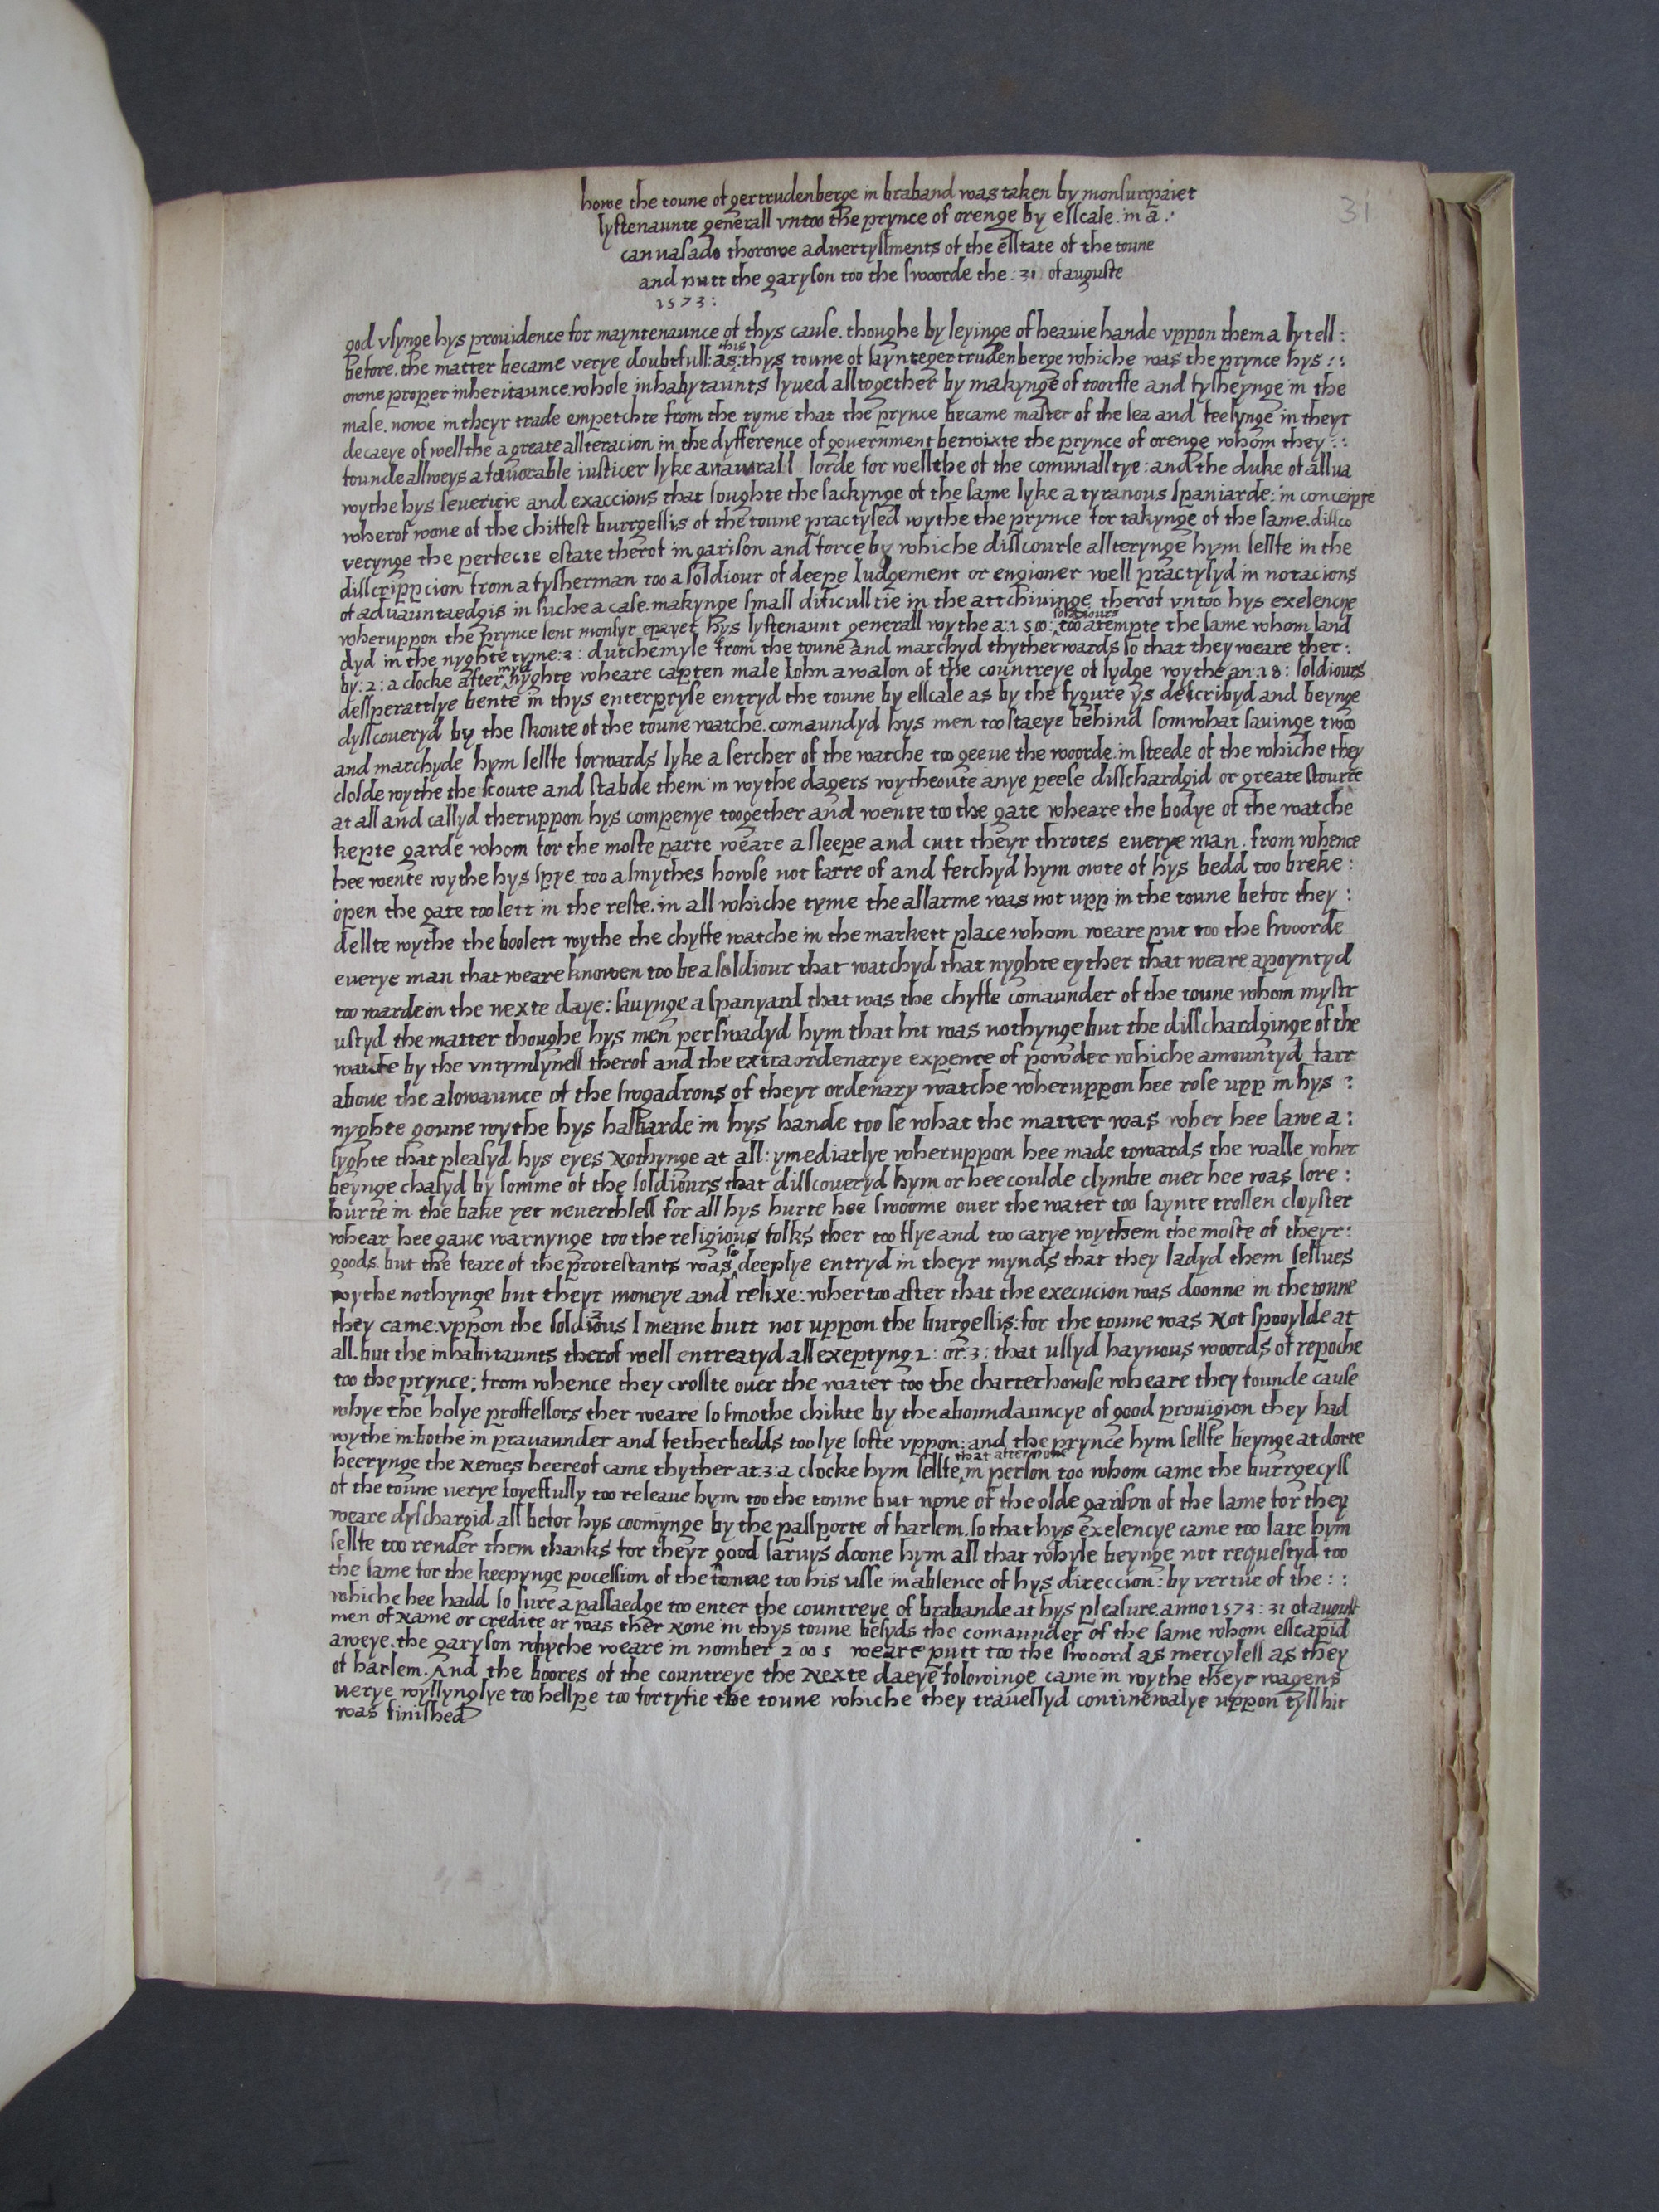 31
howe the toune of gertrudenberge in braband was taken by monsurpaiet
lyftenaunte generall vntoo the prynce of orenge by esscale. in a :
canuasado thorowe aduertyssments of the esstate of the toune
and putt the garyson too the swoorde the : 31 of auguste
1573 :
god vsynge hys prouidence for mayntenaunce of thys cause. thoughe by leyinge of heauie hande vppon them a lytell :
before. the matter became verye doubtfull: as: this thys toune of saynte gertrudenberge whiche was the prynce hys : :
owne proper inheritaunce. whose inhabytaunts lyued alltogether by makynge of toorfte and fysheynge in the
mase. nowe in theyr trade empetchte from the tyme that the prynce became master of the sea and feelynge in theyr
decaeye of wellthe a greate allteracion in the dyfference of gouernment betwixte the prynce of orenge whom they : :
founde allweys a fauorable iusticer lyke a naturall lorde for wellthe of the comunalltye : and the duke of allua
wythe hys seueritie and exaccions that soughte the sackynge of the same lyke a tyranous spaniarde : in conceipte
wherof woone of the chiffest burrgessis of the toune practysed wythe the prynce for takynge of the same. dissco
verynge the perfecte estate therof in garison and force by whiche disscourse allterynge hym sellfe in the
disscrippcion from a fysherman too a soldiour of deepe Iudgement or engioner well practysyd in notacions
of aduauntaedgis in suche a case. makynge small dificulltie in the attchiuinge therof vntoo hys exelencye
wheruppon the prynce sent monsyr epayet hys lyftenaunt generall wythe a: 1500: soldiours too atempte the same whom land
dyd in the nyghte tyme: 3 : dutchemyle from the toune and marchyd thytherwards so that they weare ther :
by : 2 : a clocke after myd nyghte wheare capten male Iohn a walon of the countreye of lydge wythe an : 18 : soldiours
dessperattlye bente in thys enterpryse entryd the toune by esscale as by the fygure ys describyd and beynge
dysscoueryd by the skoute of the toune watche. comaundyd hys men too staeye behind somwhat sauinge twoo
and marchyde hym sellfe forwards lyke a sercher of the watche too geeue the woorde. in steede of the whiche they
closde wythe the scoute and stabde them in wythe dagers wytheoute anye peese disschardgid or greate stourre
at all and callyd theruppon hys compenye toogether and wente too the gate wheare the bodye of the watche
kepte garde whom for the moste parte weare a sleepe and cutt theyr throtes euerye man. from whence
hee wente wythe hys spye too a smythes howse not farre of and fetchyd hym owte of hys bedd too breke :
open the gate too lett in the reste. in all whiche tyme the allarme was not upp in the toune befor they :
dellte wythe the boolett wythe the chyffe watche in the markett place whom weare put too the swoorde
euerye man that weare knowen too be a soldiour that watchyd that nyghte eyther that weare apoyntyd
too warde on the nexte daye : sauynge a spanyard that was the chyffe comaunder of the toune whom mystr
ustyd the matter thoughe hys men perswadyd hym that hit was nothynge but the disschardginge of the
watche by the vntymlyness therof and the extraordenarye expence of powder whiche amountyd farr
aboue the alowaunce of the swgadrons of theyr ordenary watche wheruppon hee rose upp in hys :
nyghte goune wythe hys hallbarde in hys hande too se what the matter was wher hee sawe a :
syghte that pleasyd hys eyes nothynge at all : ymediatlye wheruppon hee made towards the walle wher
beynge chasyd by somme of the soldiours that disscoueryd hym or hee coulde clymbe ouer hee was sore :
hurte in the bake yet neuerthless for all hys hurte hee swoome ouer the water too saynte trossen cloyster
whear hee gaue warnynge too the religious folks ther too flye and too carye wythem the moste of theyr :
goods. but the feare of the protestants was so deeplye entryd in theyr mynds that they ladyd them sellues
wythe nothynge but theyr moneye and relixe : wher too after that the execucion was doonne in the toune
they came : vppon the soldious I meane butt not uppon the burgessis : for the toune was not spooylde at
all. but the inhabitaunts therof well entreatyd all exeptyng : 2 : or : 3 : that ussyd haynous woords of repoche
too the prynce ; from whence they crosste ouer the water too the charterhowse wheare they founde cause
whye the holye proffessors ther weare so smothe chikte by the aboundauncye of good prouigion they had
wythe in : bothe in prauaunder and fetherbedds too lye softe vppon : and the prynce hym sellfe beynge at dorte
heerynge the newes heereof came thyther at 3 : a clocke hym sellfe that afternoone in person too whom came the burrgecyss
of the toune uerye Ioyeffully too releaue hym too the toune but none of the olde garison of the same for they
weare dyschargid all befor hys coomynge by the passporte of harlem. so that hys exelencye came too late hym
sellfe too render them thanks for theyr good saruys doone hym all that whyle beynge not requestyd too
the same for the keepynge pocession of the toune too his usse in absence of hys direccion : by vertue of the : :
whiche hee hadd so sure a passaedge too enter the countreye of brabande at hys pleasure. anno 1573 : 31 of august
men of name or credite or was ther none in thys toune besyds the comaunder of the same whom esscapid
aweye. the garyson whyche weare in nomber 2005 weare putt too the swoord as mercyless as they
of harlem. And the boores of the countreye the nexte daeye folowinge came in wythe theyr wagens
uerye wyllynglye too hellpe too fortyfie the toune whiche they trauellyd continewalye uppon tyll hit
was finished